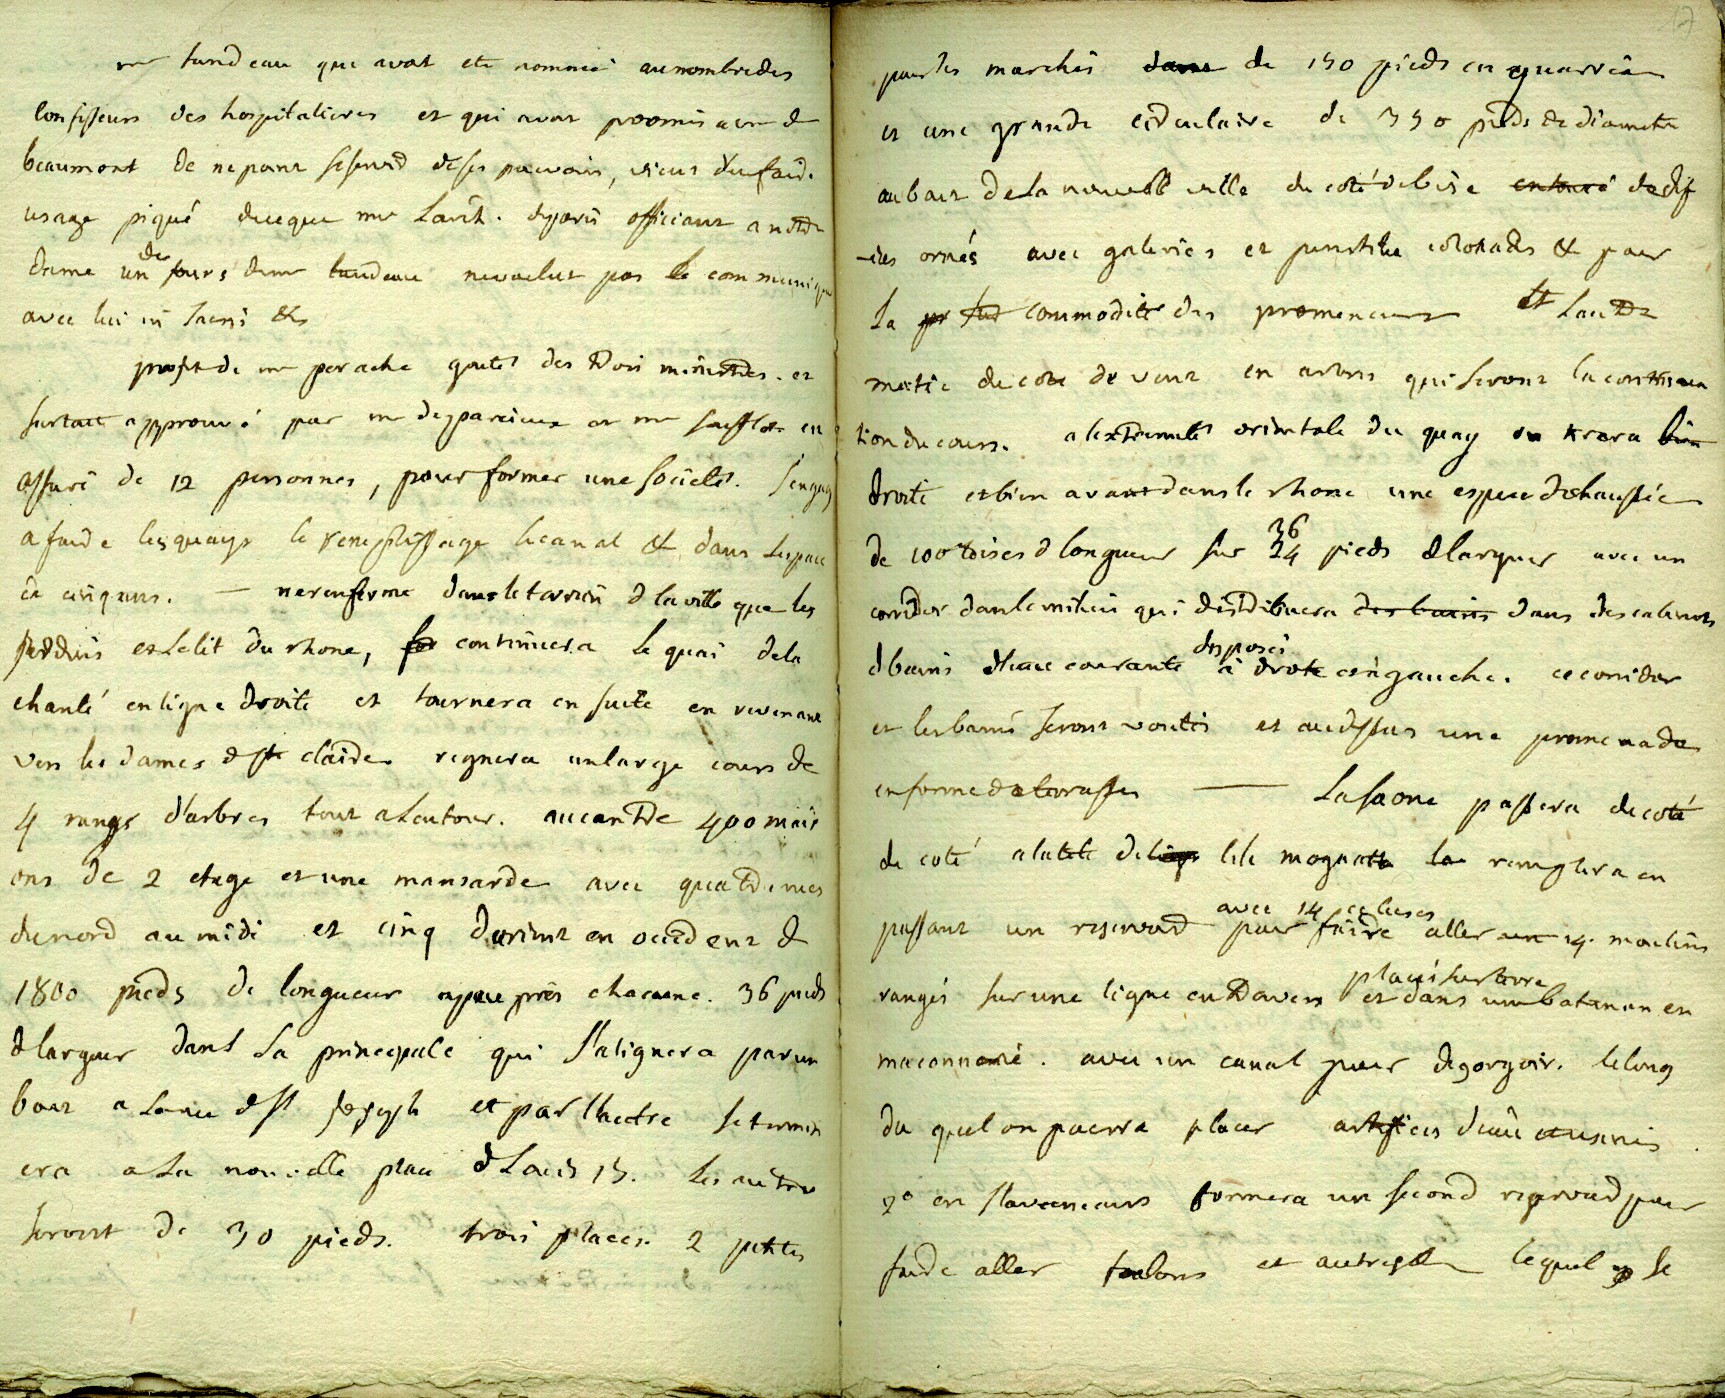 mr tandeau qui avoit ete nommé au nombre des
confesseurs des hospitalieres et qui avoit promis a mr d
beaumont de ne point se servir de ses pouvoirs, vient d'en faire
usage piqué de ce que mr l'arch. de paris officiant a notre
dame un des jours dernr tandeau ne voulut pas le communiquer
avec lui in sacris &
projet de mr perache gouté des trois ministres. et
surtout approuvé par mr de parcieux et mr soufflot en
assuré de 12 personnes, pour former une societé. s'engage
a faire les quays le remplissage le canal & dans l'espace
de cinq ans. — ne renferme dans le terrein d la ville que les
perdus et le lit du rhone, continuera le quai de la
charité en ligne droite et tournera en suite en revenant
vers les dames d ste claire regnera un large cours de
4 rangs d'arbres tout a l'entour. au centre 400 mais
ons de 2 etage et une mansarde avec quatre rues
du nord au midi et cinq d'orient en occident d
1800 pieds de longueur a peu près chacune. 36 pieds
d largeur dans la principale qui s'alignera par un
bout a la rue d st joseph et par l'autre se termin
era a la nouvelle place d Louis 15. les autres
seront de 30 pieds. trois places. 2 petites
17
pour les marchés dans de 150 pieds en quarré
et une grande circulaire de 350 pieds de diametre
au bout de la nouvelle ville du coté de bise entouré d'edif
-ices ornés avec galeries et peristile colonades & pour
la commodité des promeneurs et l'autre
moitié du coté de vent en arbres qui seront la continua
tion du cours. a l'extremité orientale du quay on tirera bien
droite et bien avant dans le rhone une espece d chaussée
de 100 toises d longueur sur 24 36 pieds d largeur avec un
corridor dans le milieu qui distribuera des bains dans des cabinets
d bains d'eau courante disposés à droite et à gauche. ce corridor
et les bains seront voutés et au dessus une promenade
en forme d terrasse — La saone passera du coté
de coté a la tete de l'isle mognatte la remplira en
passant un reservoir avec 14 ecluses pour faire aller 14. moulins
rangés sur une ligne en travers placés sur terre et dans un batiment en
maconnerie. avec un canal pour degorgeoir. le long
du quel on pourra placer artifices d'eau et usines.
2° en s'avancant formera un second reservoir pour
faire aller foulons et autres & lequel se